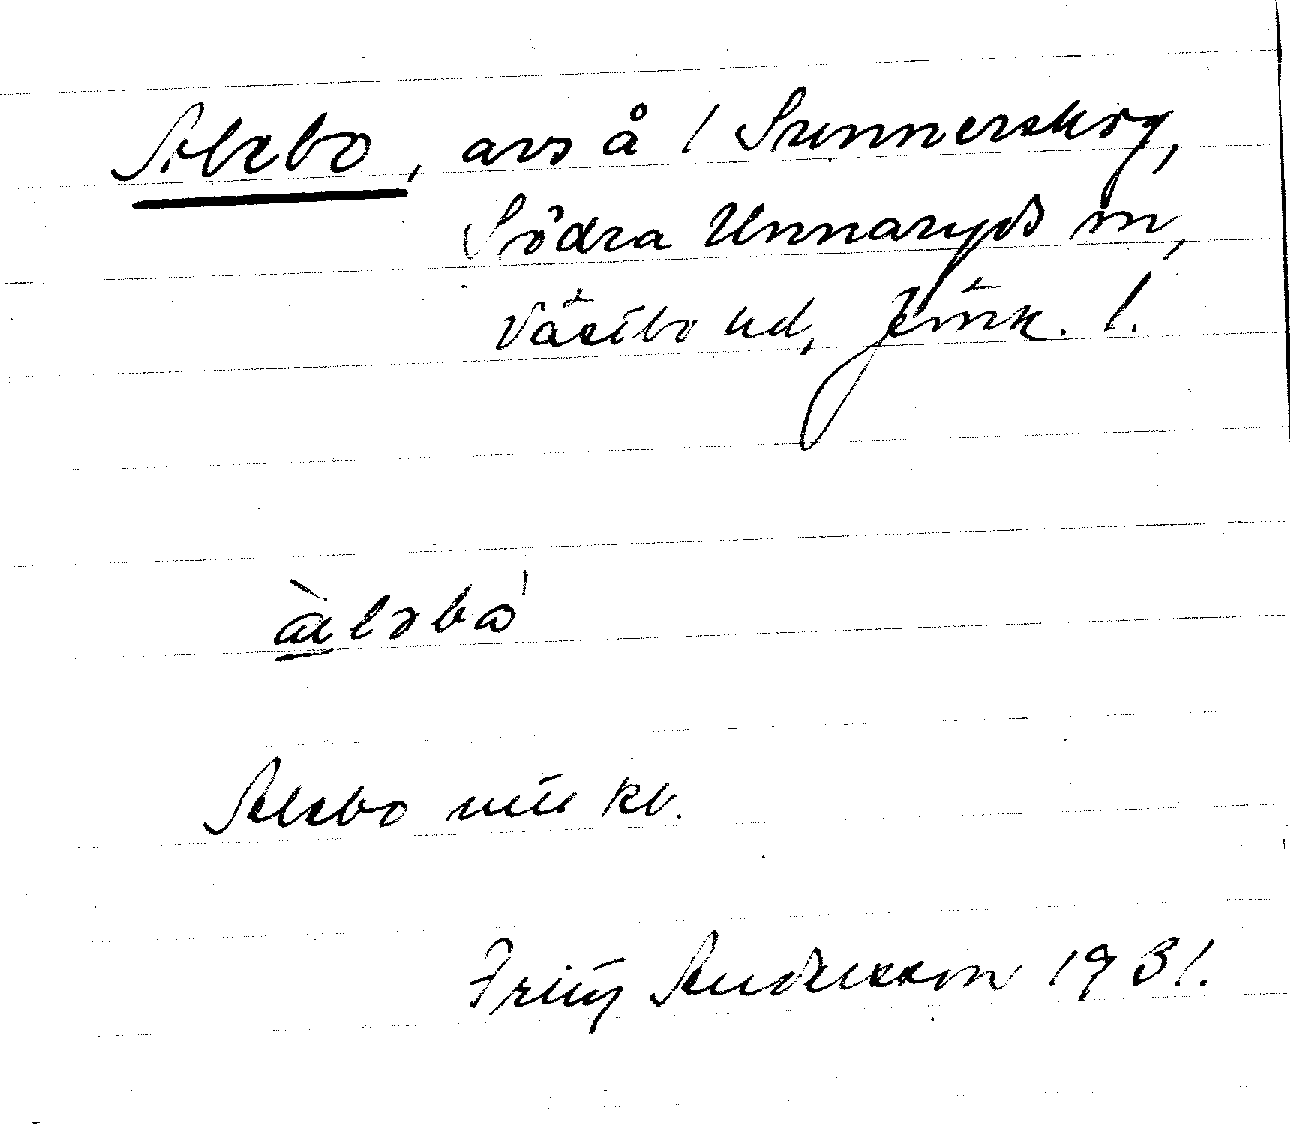 Alebo, avs å / Sunnerskog,
Södra Unnaryds sn,
Västbo hd, Jönk. l.
àləbo'
Alebo utt kb.
Fritz Andersson 1931.